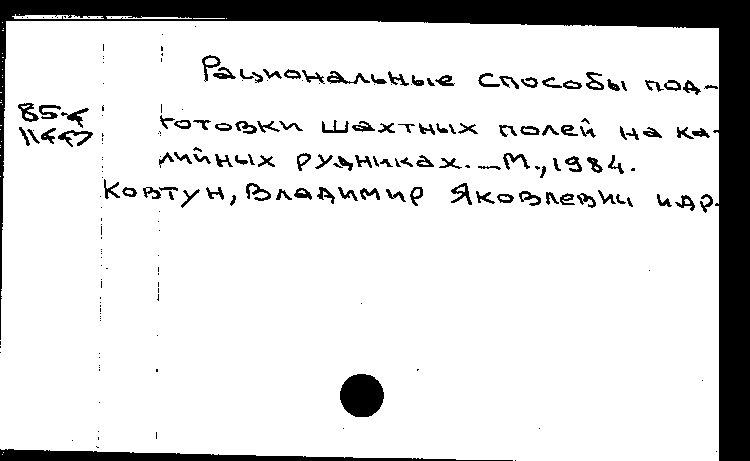 Рациональные способы под-
85-4
готовки шахтных полей на ка-
лийных рудниках. – М., 1984.
Ковтун, Владимир Яковлевич и др.